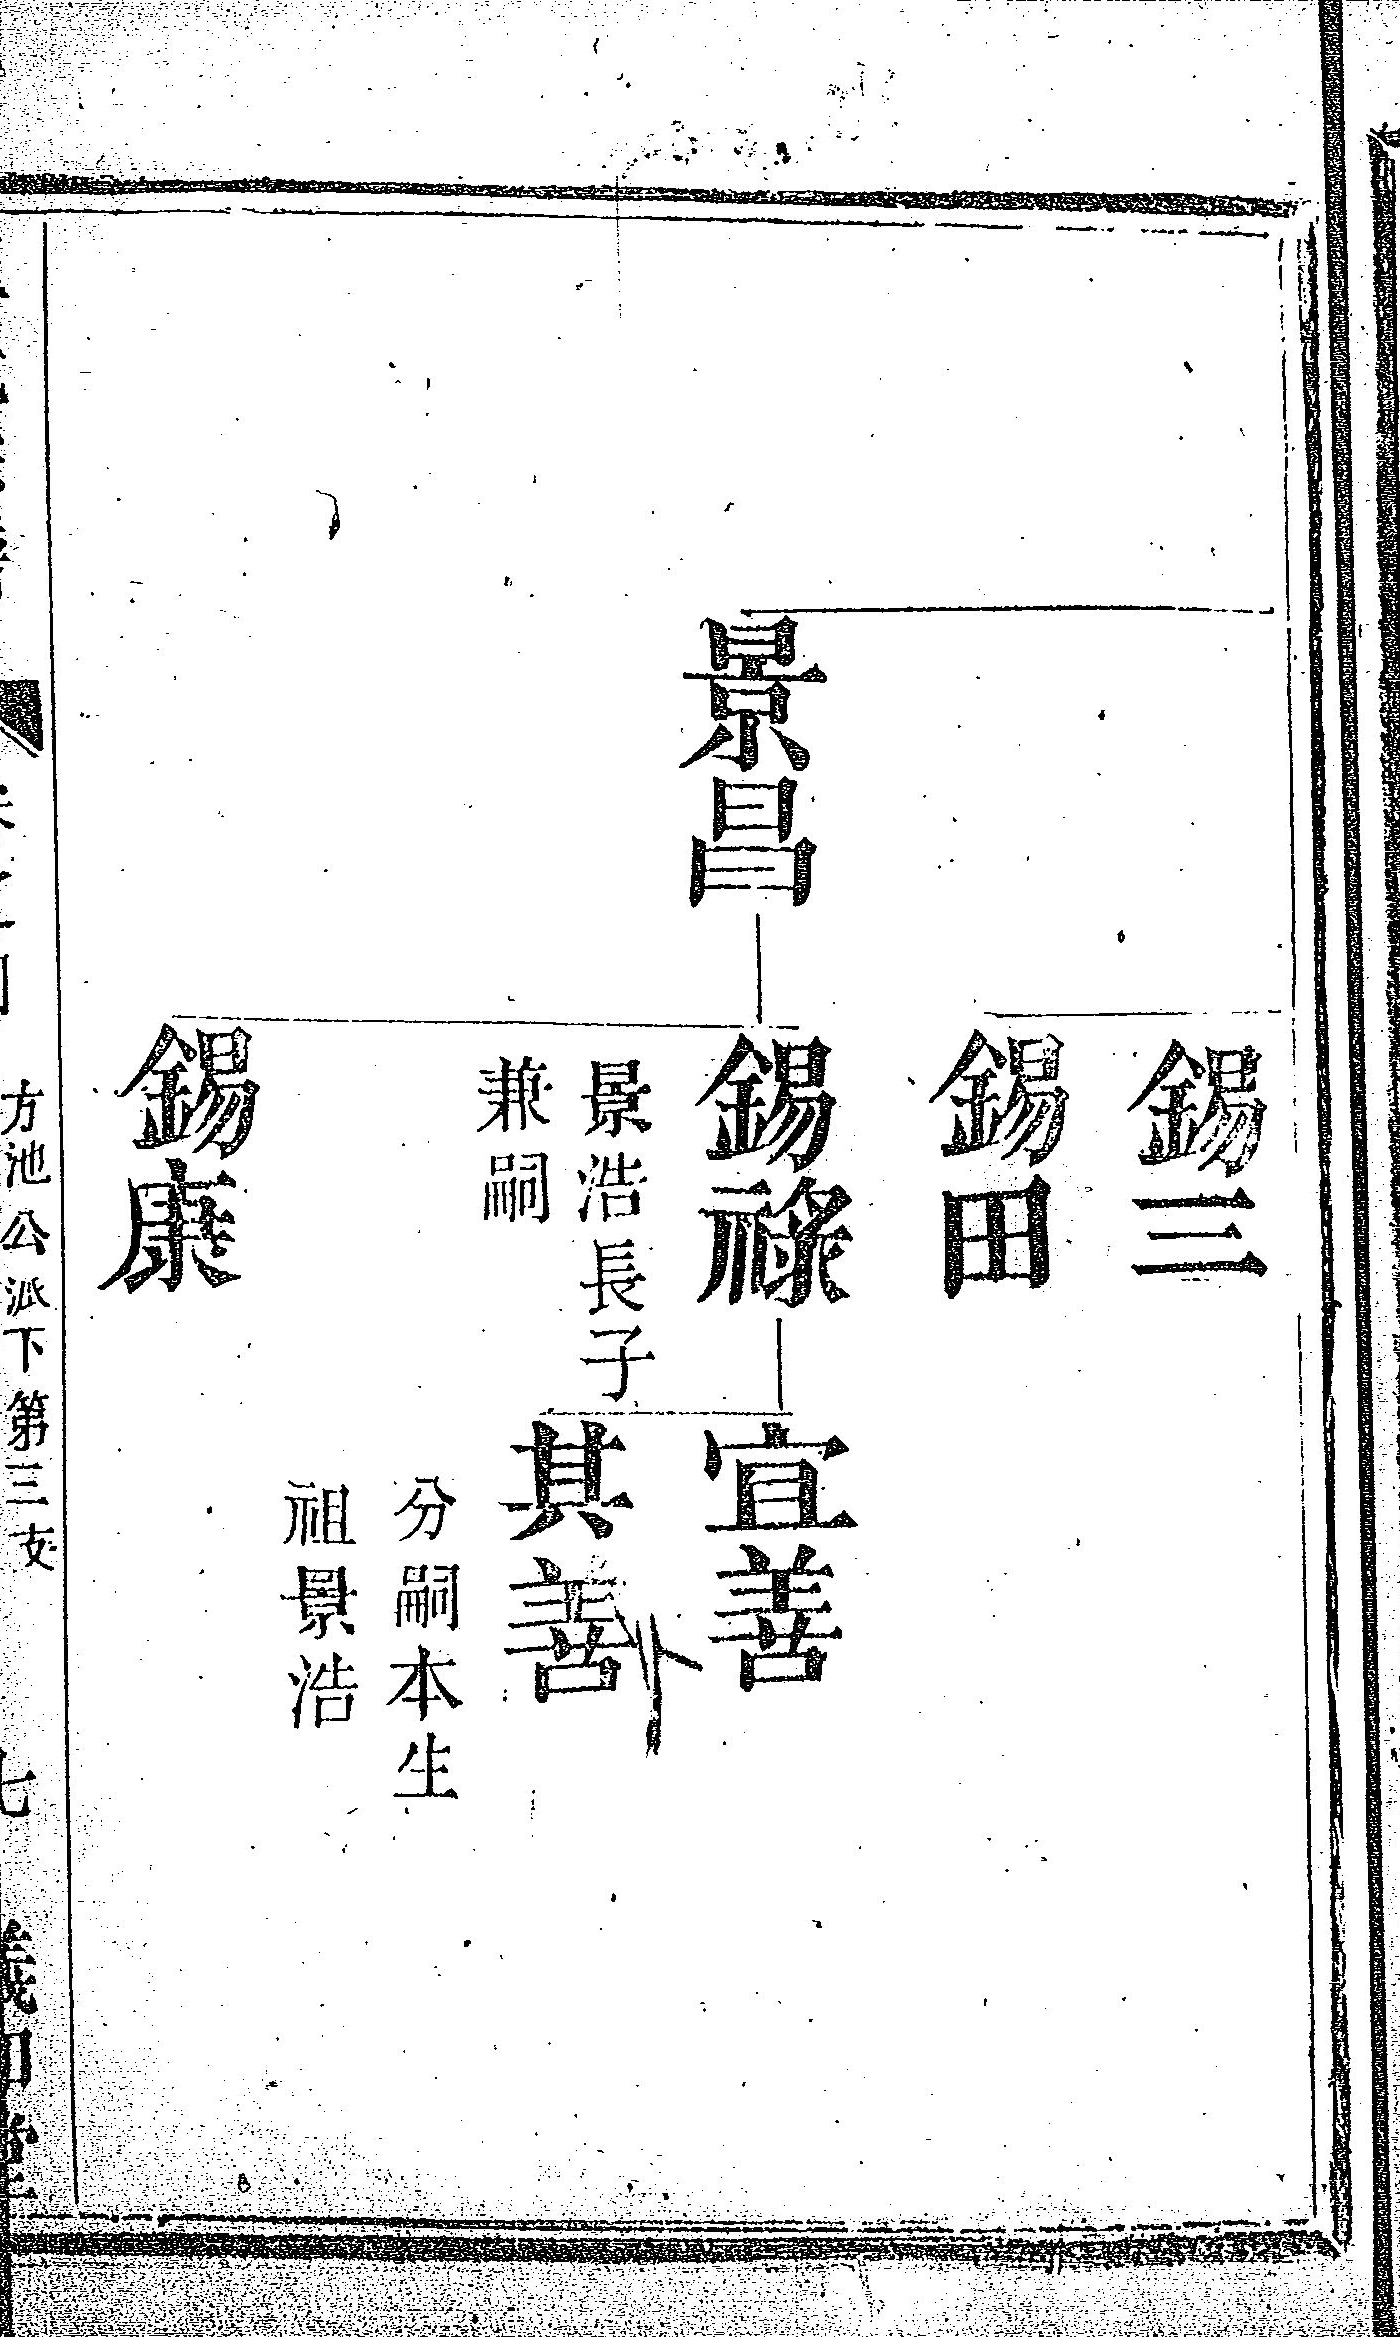 錫三
錫田
景昌
錫祿
宜善
景浩長子
兼嗣
其善
分嗣本生
祖景浩
錫康
方池公派下第三支
七